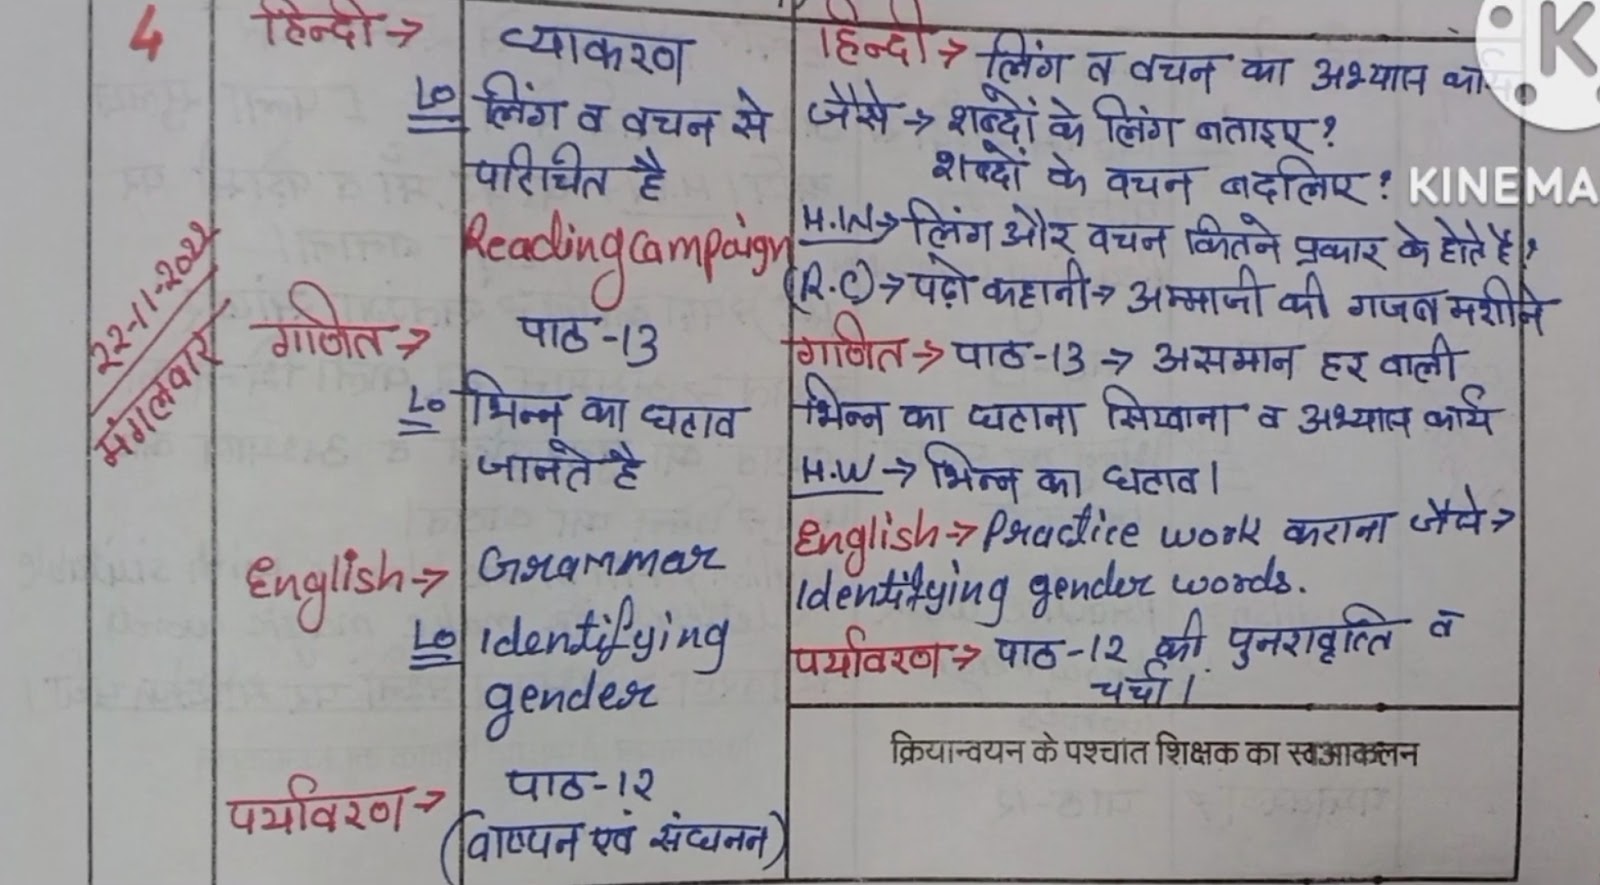 4
22-11-2022
मंगलवार
हिन्दी →
व्याकरण
LO लिंग व वचन से
परिचित है
Reading campaign
गणित →
पाठ -13
LO भिन्न का घटाव
जानते है
English →
Grammar
LO Identifying
gender
पर्यावरण →
पाठ -12
(वाष्पन एवं संघनन)
हिन्दी → लिंग व वचन का अभ्यास
जैसे → शब्दों के लिंग बताइए?
शब्दों के वचन बदलिए?
H.W → लिंग और वचन कितने प्रकार के होते है?
(R.C) → पढ़ो कहानी → अम्माजी की गजब मशीने
गणित → पाठ -13 → असमान हर वाली
भिन्न का घटाना सिखाना व अभ्यास कार्य
H.W → भिन्न का घटाव।
English → Practice work कराना जैसे →
Identifying gender words.
पर्यावरण → पाठ -12 की पुनरावृत्ति व
चर्चा।
क्रियान्वयन के पश्चात शिक्षक का स्वआकलन
KINEMA